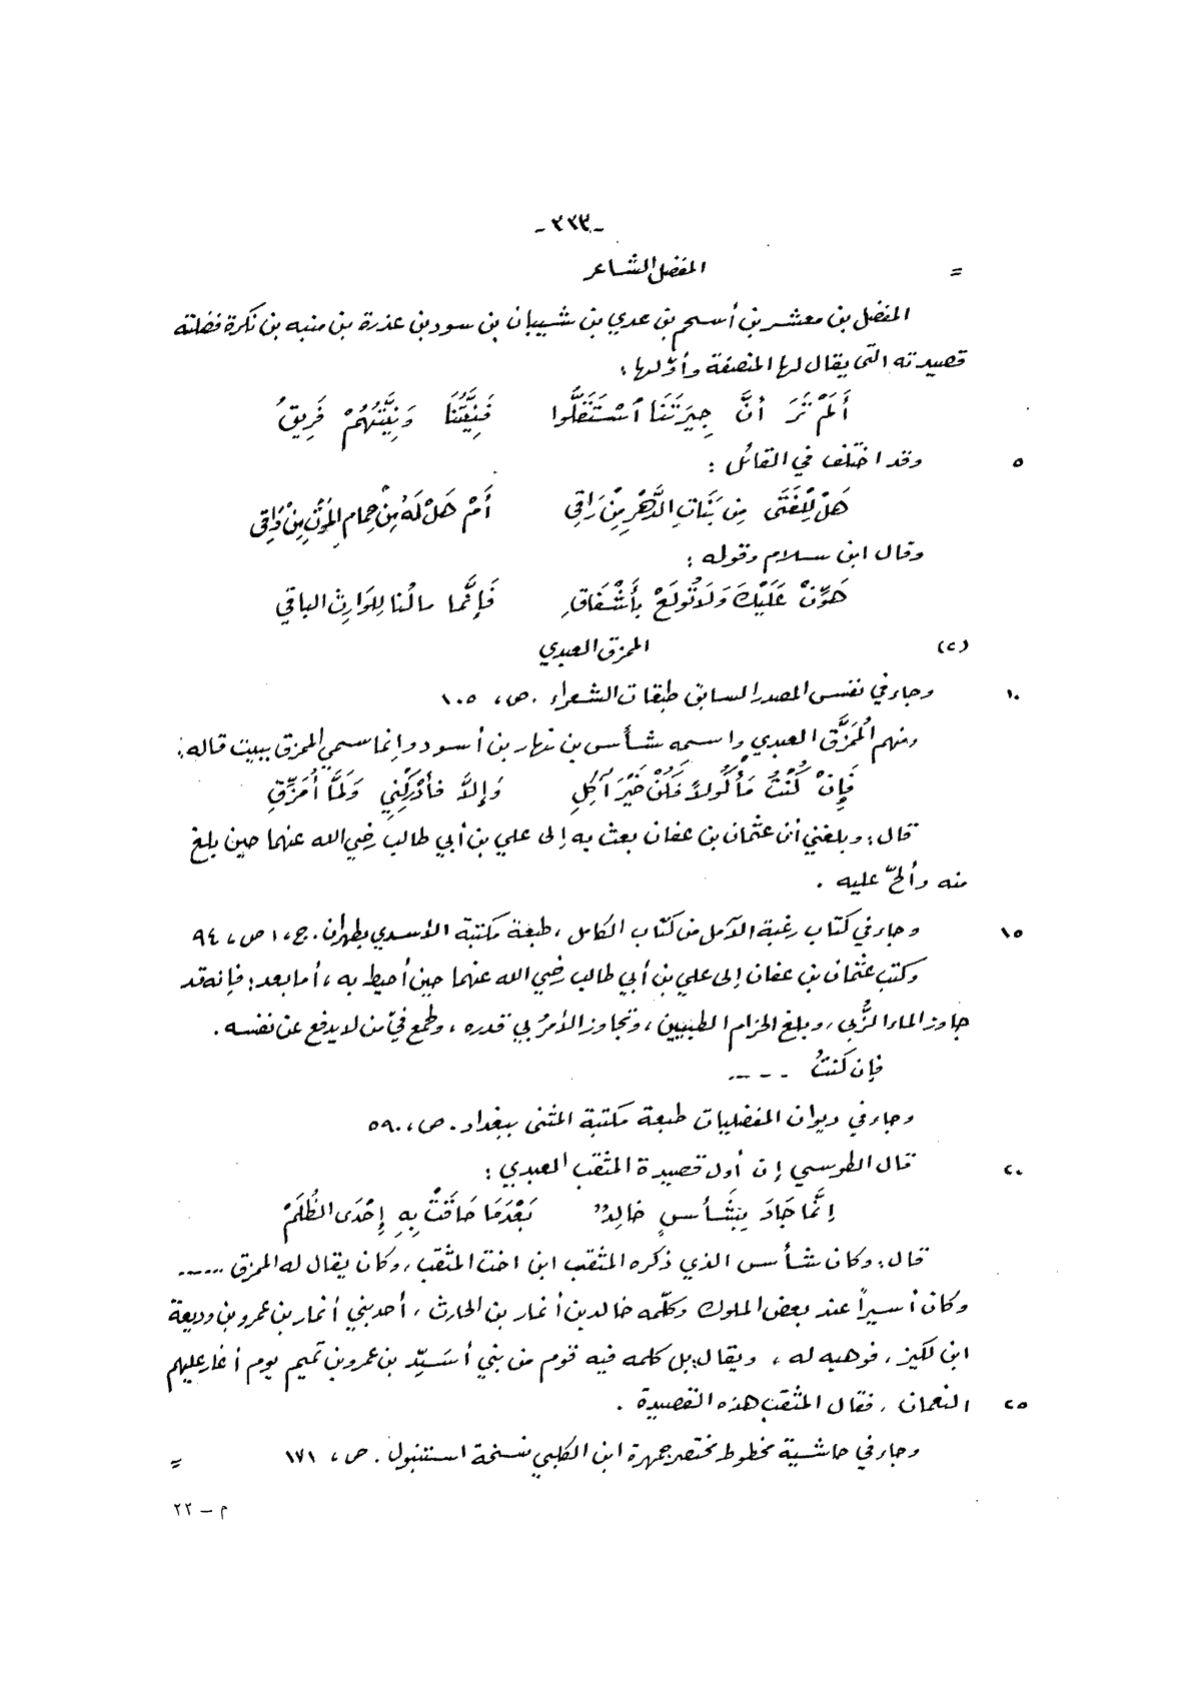 -٣٣٣-
= المفضل الشاعر
المفضل بن معشر بن أسحم بن عدي بن شيبان بن سود بن عذرة بن منبه بن نكرة فضلته
قصيدته التي يقال لها المنصفة وأوّلها :
أَلَمْ تَرَ أنَّ جِيرَتَنَا ٱسْتَقَلُّوا فَنِيَّتُنَا وَنِيَّتُهُمْ فَرِيقُ
٥ وقد اختلف في القائل :
هَلْ لِلْفَتَى مِن بَنَاتِ الدَّهْرِ مِنْ رَاقِي أَمْ هَلْ لَهُ مِنْ حِمامِ المَوْتِ مِنْ وَاقِي
وقال ابن سلام وقوله :
هَوِّنْ عَلَيْكَ وَلَا تُولَعْ بِأَشْفَاقِ فَإِنَّما مالُنا لِلوَارِثِ الباقي
(٢) الممزق العبدي
١٠ وجاء في نفس المصدر السابق طبقات الشعراء . ص، ١٠٥
ومنهم الُمَزَّق العبدي واسمه شأس بن نهار بن أسود وإنما سمي الممزق ببيت قاله :
فَإِنْ كُنْتُ مَأْكُولاً فَكُنْ خَيْرَ آكِلِ وَإِلاَّ فَأَدْرِكْنِي وَلَمَّا أُمَزَّقِ
قال : وبلغني أن عثمان بن عفان بعث به إلى علي بن أبي طالب رضي الله عنهما حين بلغ
منه وألحّ عليه .
١٥ وجاء في كتاب رغبة الآمل من كتاب الكامل ، طبعة مكتبة الأسدي بطهران . ج، ١ ص، ٩٤
وكتب عثمان بن عفان إلى علي بن أبي طالب رضي الله عنهما حين أحيط به ، أما بعد : فإنه قد
جاوز الماء الزُّبى ، وبلغ الحزام الطبيين ، وتجاوز الأمرُ بي قدره ، وطمع فيّ من لا يدفع عن نفسه .
فإن كنتُ - - --
وجاء في ديوان المفضليات طبعة مكتبة المثنى ببغداد . ص، ٥٩٠
٢٠ قال الطوسي إن أول قصيدة المثقب العبدي :
إنَّما جَادَ بِشَأسٍ خالِدٌ بَعْدَمَا حَاقَتْ بِهِ إِحْدَى الظُّلَمْ
قال : وكان شأس الذي ذكره المثقب ابن اخت المثقب ، وكان يقال له الممزق ......
وكان أسيراً عند بعض الملوك وكلّمه خالد بن أنمار بن الحارث ، أحد بني أنمار بن عمرو بن وديعة
ابن لكيز ، فوهبه له ، ويقال : بل كلمه فيه قوم من بني أسَيِّد بن عمرو بن تميم يوم أغار عليهم
٢٥ النعمان ، فقال المثقب هذه القصيدة .
وجاء في حاشية مخطوط مختصر جمهرة ابن الكلبي نسخة استنبول . ص، ١٧١ =
م – ٢٢